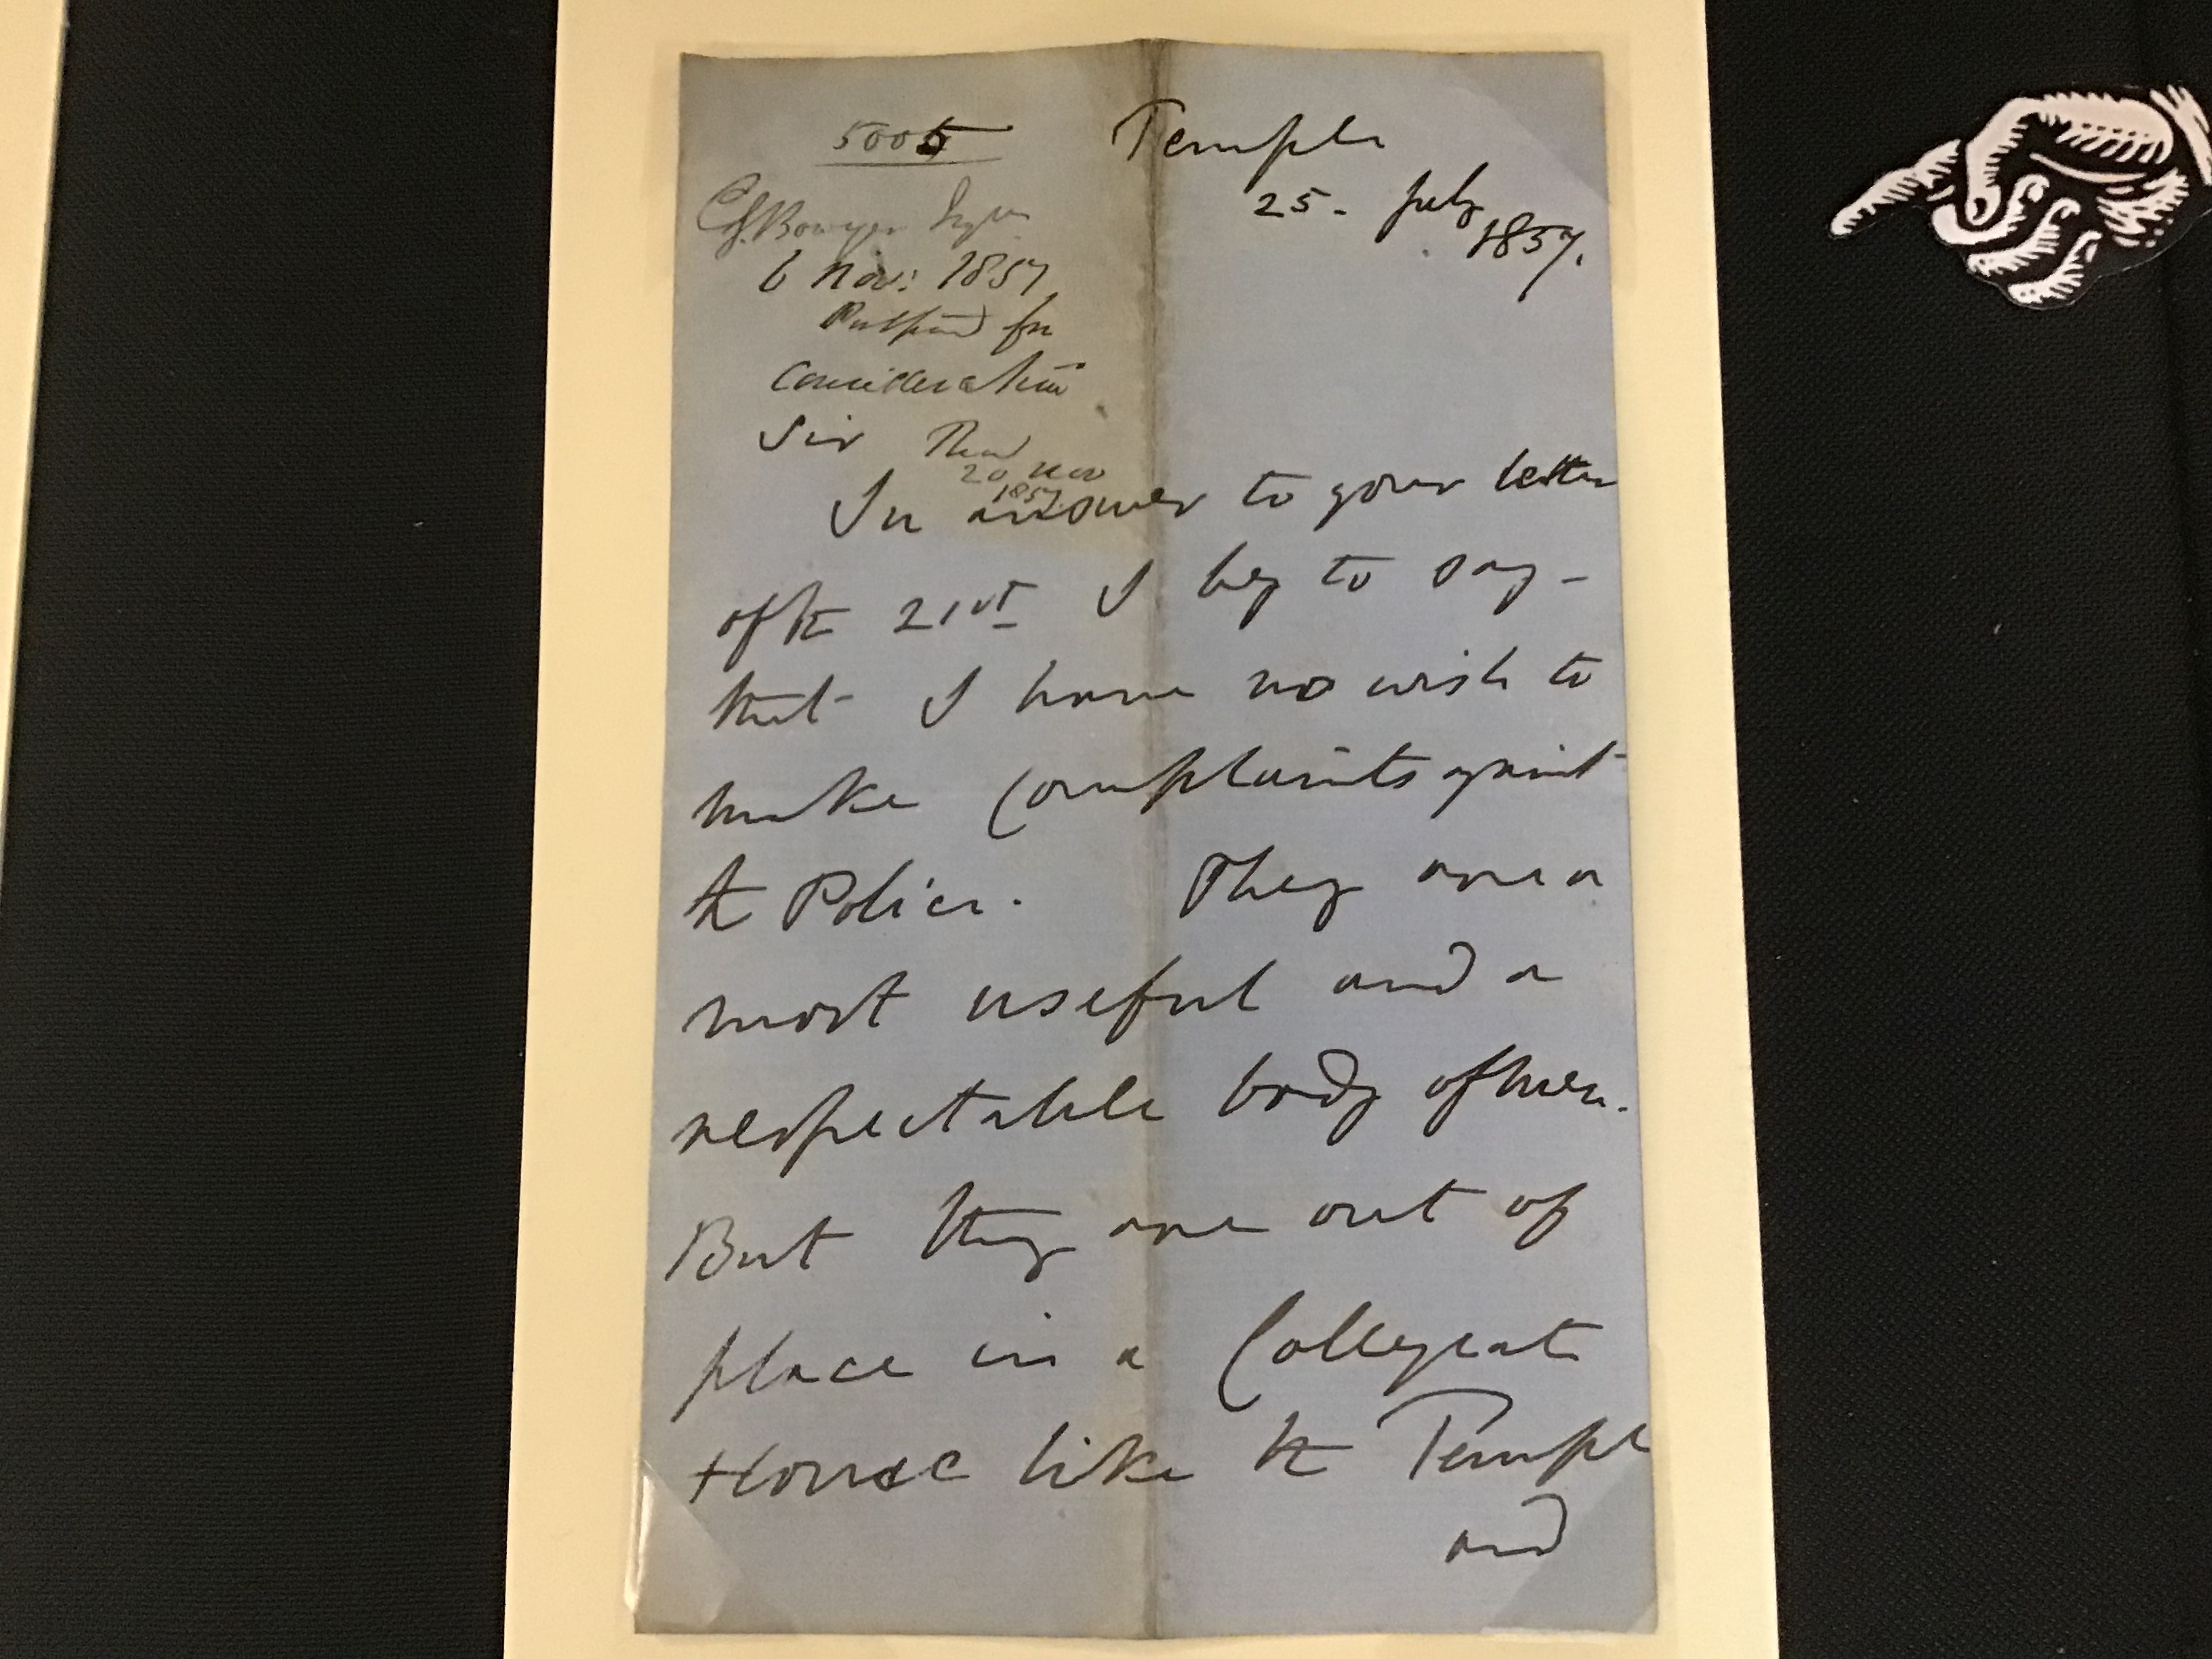 5005
Temple
25. July
1857.
G. Bowyer Esqre
6 Nov: 1857
Postponed for
Consideration
Sir
Read
20 Nov
1857
In answer to your letter
of the 21st I beg to say -
that I have no wish to
make Complaints against
the Police. They are a
most useful and a
respectable body of men.
But they are out of
place in a Collegiate
House like the Temple
and